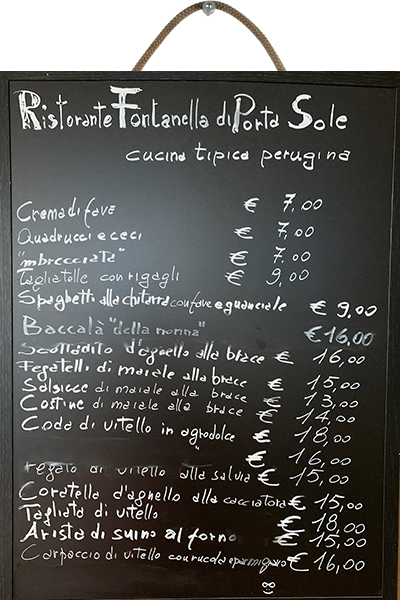 Ristorante Fontanella di Porta Sole
cucina tipica perugina
Crema di fave € 7,00
Quadrucci e ceci € 7,00
"mbrecciata" € 7,00
Tagliatelle con rigagli € 9,00
Spaghetti alla chitarra con fave e guanciale € 9,00
Baccalà "della nonna" €16,00
Scottadito d'agnello alla brace € 16,00
Fegatelli di maiale alla brace € 15,00
Salsicce di maiale alla brace € 13,00
Costine di maiale alla brace € 14,00
Coda di vitello in agrodolce € 18,00
€ 16,00
Fegato di vitello alla salvia € 15,00
Coratella d'agnello alla cacciatora € 15,00
Tagliata di vitello € 18,00
Arista di suino al forno € 15,00
Carpaccio di vitello con rucola e parmigiano € 16,00